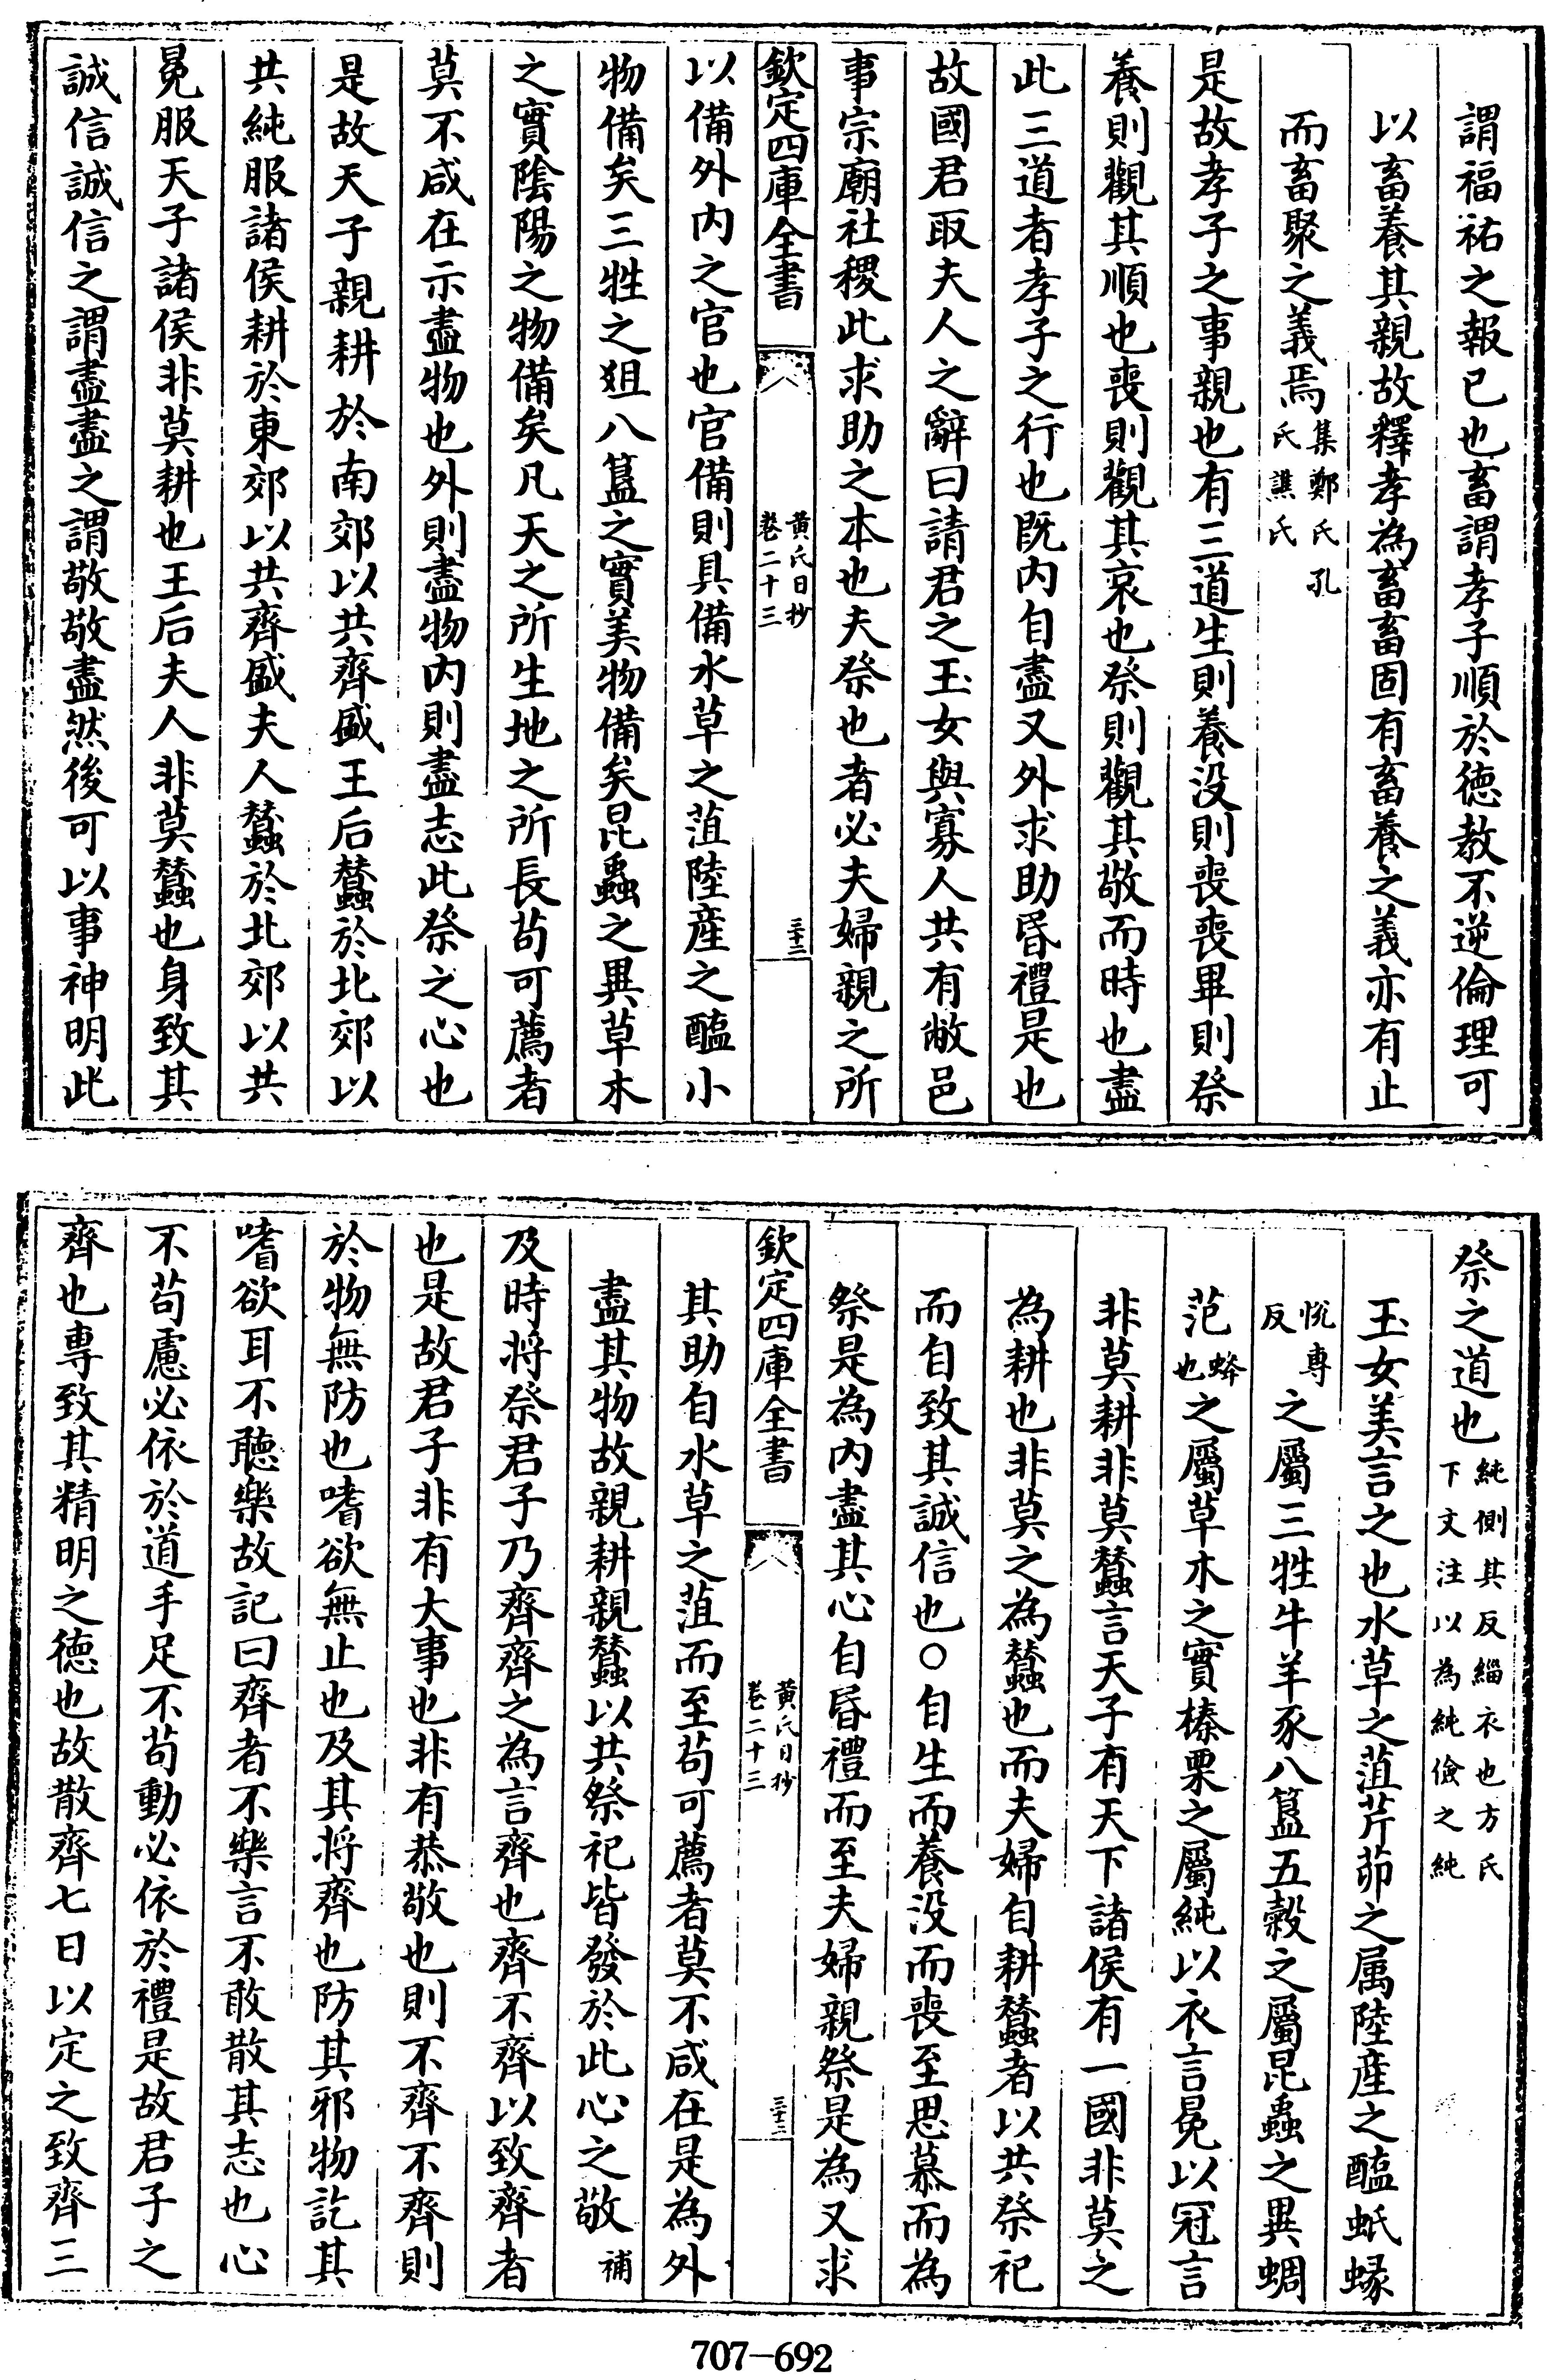 謂福祐之報已也畜謂孝子順於徳教不逆倫理可
以畜養其親故釋孝為畜畜固有畜養之義亦有止
而畜聚之義焉集鄭氏孔
氏譙氏
是故孝子之事親也有三道生則養没則喪喪畢則祭
養則觀其順也喪則觀其哀也祭則觀其敬而時也盡
此三道者孝子之行也既内自盡又外求助昏禮是也
故國君取夫人之辭曰請君之玉女與寡人共有敝邑
事宗廟社稷此求助之本也夫祭也者必夫婦親之所
欽定四庫全書
黄氏日抄
卷二十三
三十二
以備外内之官也官備則具備水草之菹陸産之醢小
物備矣三牲之俎八簋之實美物備矣昆蟲之異草木
之實陰陽之物備矣凡天之所生地之所長苟可薦者
莫不咸在示盡物也外則盡物内則盡志此祭之心也
是故天子親耕於南郊以共齊盛王后蠶於北郊以
共純服諸侯耕於東郊以共齊盛夫人蠶於北郊以共
冕服天子諸侯非莫耕也王后夫人非莫蠶也身致其
誠信誠信之謂盡盡之謂敬敬盡然後可以事神明此
祭之道也純側其反緇衣也方氏
下文注以為純儉之純
玉女美言之也水草之菹芹茆之属陸産之醢蚳蝝
悦專
反之屬三牲牛羊豕八簋五穀之屬昆蟲之異蜩
范蜂
也之屬草木之實榛栗之屬純以衣言冕以冠言
非莫耕非莫蠶言天子有天下諸侯有一國非莫之
為耕也非莫之為蠶也而夫婦自耕蠶者以共祭祀
而自致其誠信也○自生而養没而喪至思慕而為
祭是為内盡其心自昏禮而至夫婦親祭是為又求
欽定四庫全書
黄氏日抄
卷二十三
三十三
其助自水草之菹而至苟可薦者莫不咸在是為外
盡其物故親耕親蠶以共祭祀皆發於此心之敬補
及時将祭君子乃齊齊之為言齊也齊不齊以致齊者
也是故君子非有大事也非有恭敬也則不齊不齊則
於物無防也嗜欲無止也及其将齊也防其邪物訖其
嗜欲耳不聽樂故記曰齊者不樂言不敢散其志也心
不苟慮必依於道手足不苟動必依於禮是故君子之
齊也專致其精明之徳也故散齊七日以定之致齊三
707-692